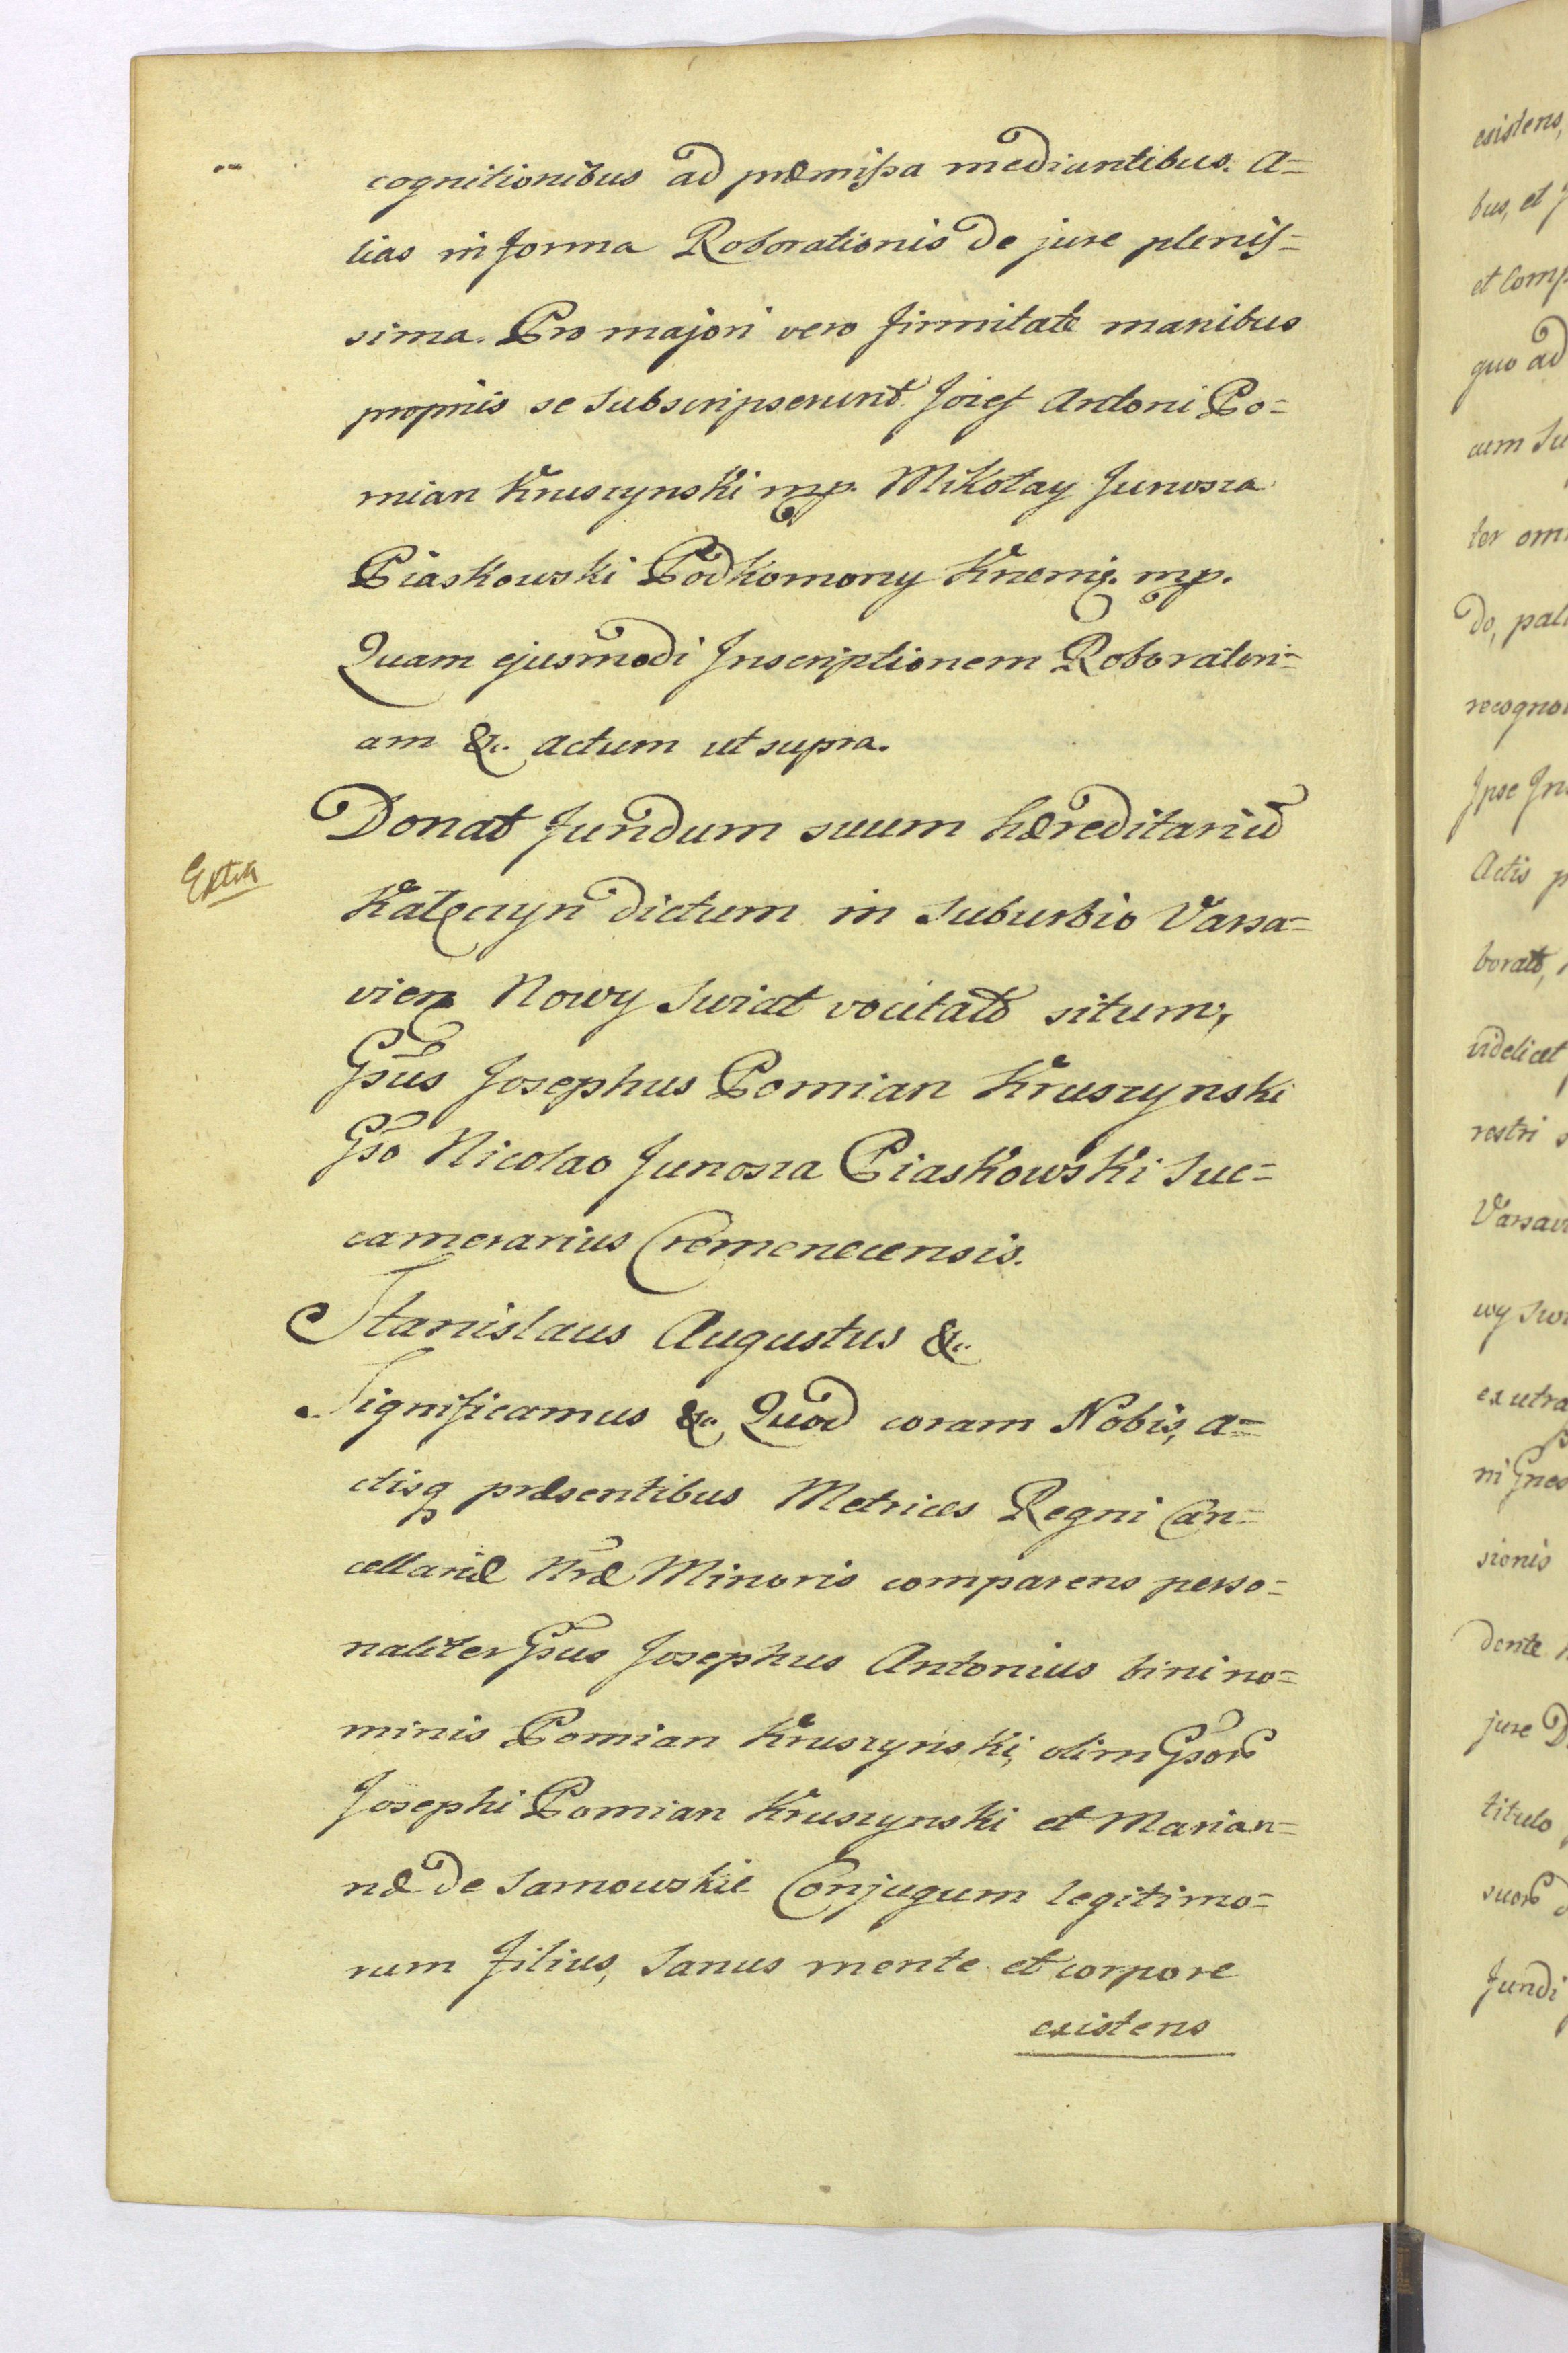 cognitionibus ad præmissa mediantibus. a=
lias in forma Roborationis de jure plenis=
sima. Pro majori vero firmitate manibus
propriis se subscripserunt. Jozef Antoni Po=
mian Kruszynski mp. Mikołay Junosza
Piaskowski Podkomorzy Krzemie. mp.
Quam ejusmodi Inscriptionem Roboratori=
am &c. actum ut supra.
Donat fundum suum hæreditariũ
Kałęczyn dictum in suburbio Varsa=
vien Nowy Swiat vocitato situm,
Gsus Josephus Pomian Kruszynski
Gso Nicolao Junosza Piaskowski Suc=
camerarius Cremenecensis.
Stanislaus Augustus &c.
Significamus &c. Quod coram Nobis, a=
ctisq præsentibus Metrices Regni Can=
cellariæ Nræ Minoris comparens perso=
naliter Gsus Josephus Antonius binino=
minis Pomian Kruszynski, olim Gsor
Josephi Pomian Kruszynski et Marian=
næ de Sarnowskie Conjugum legitimo=
rum filius, sanus mente et corpore
existens
existens,
bus, et
et Comp
quo ad
cum Su
ter om
do, pal
recogno
Ipse In
Actis p
borato,
videlicet
restri s
Varsav
wy Swi
ex utra
ni Gnes
sionis
dente
jure D
titulo
suor d
fundi